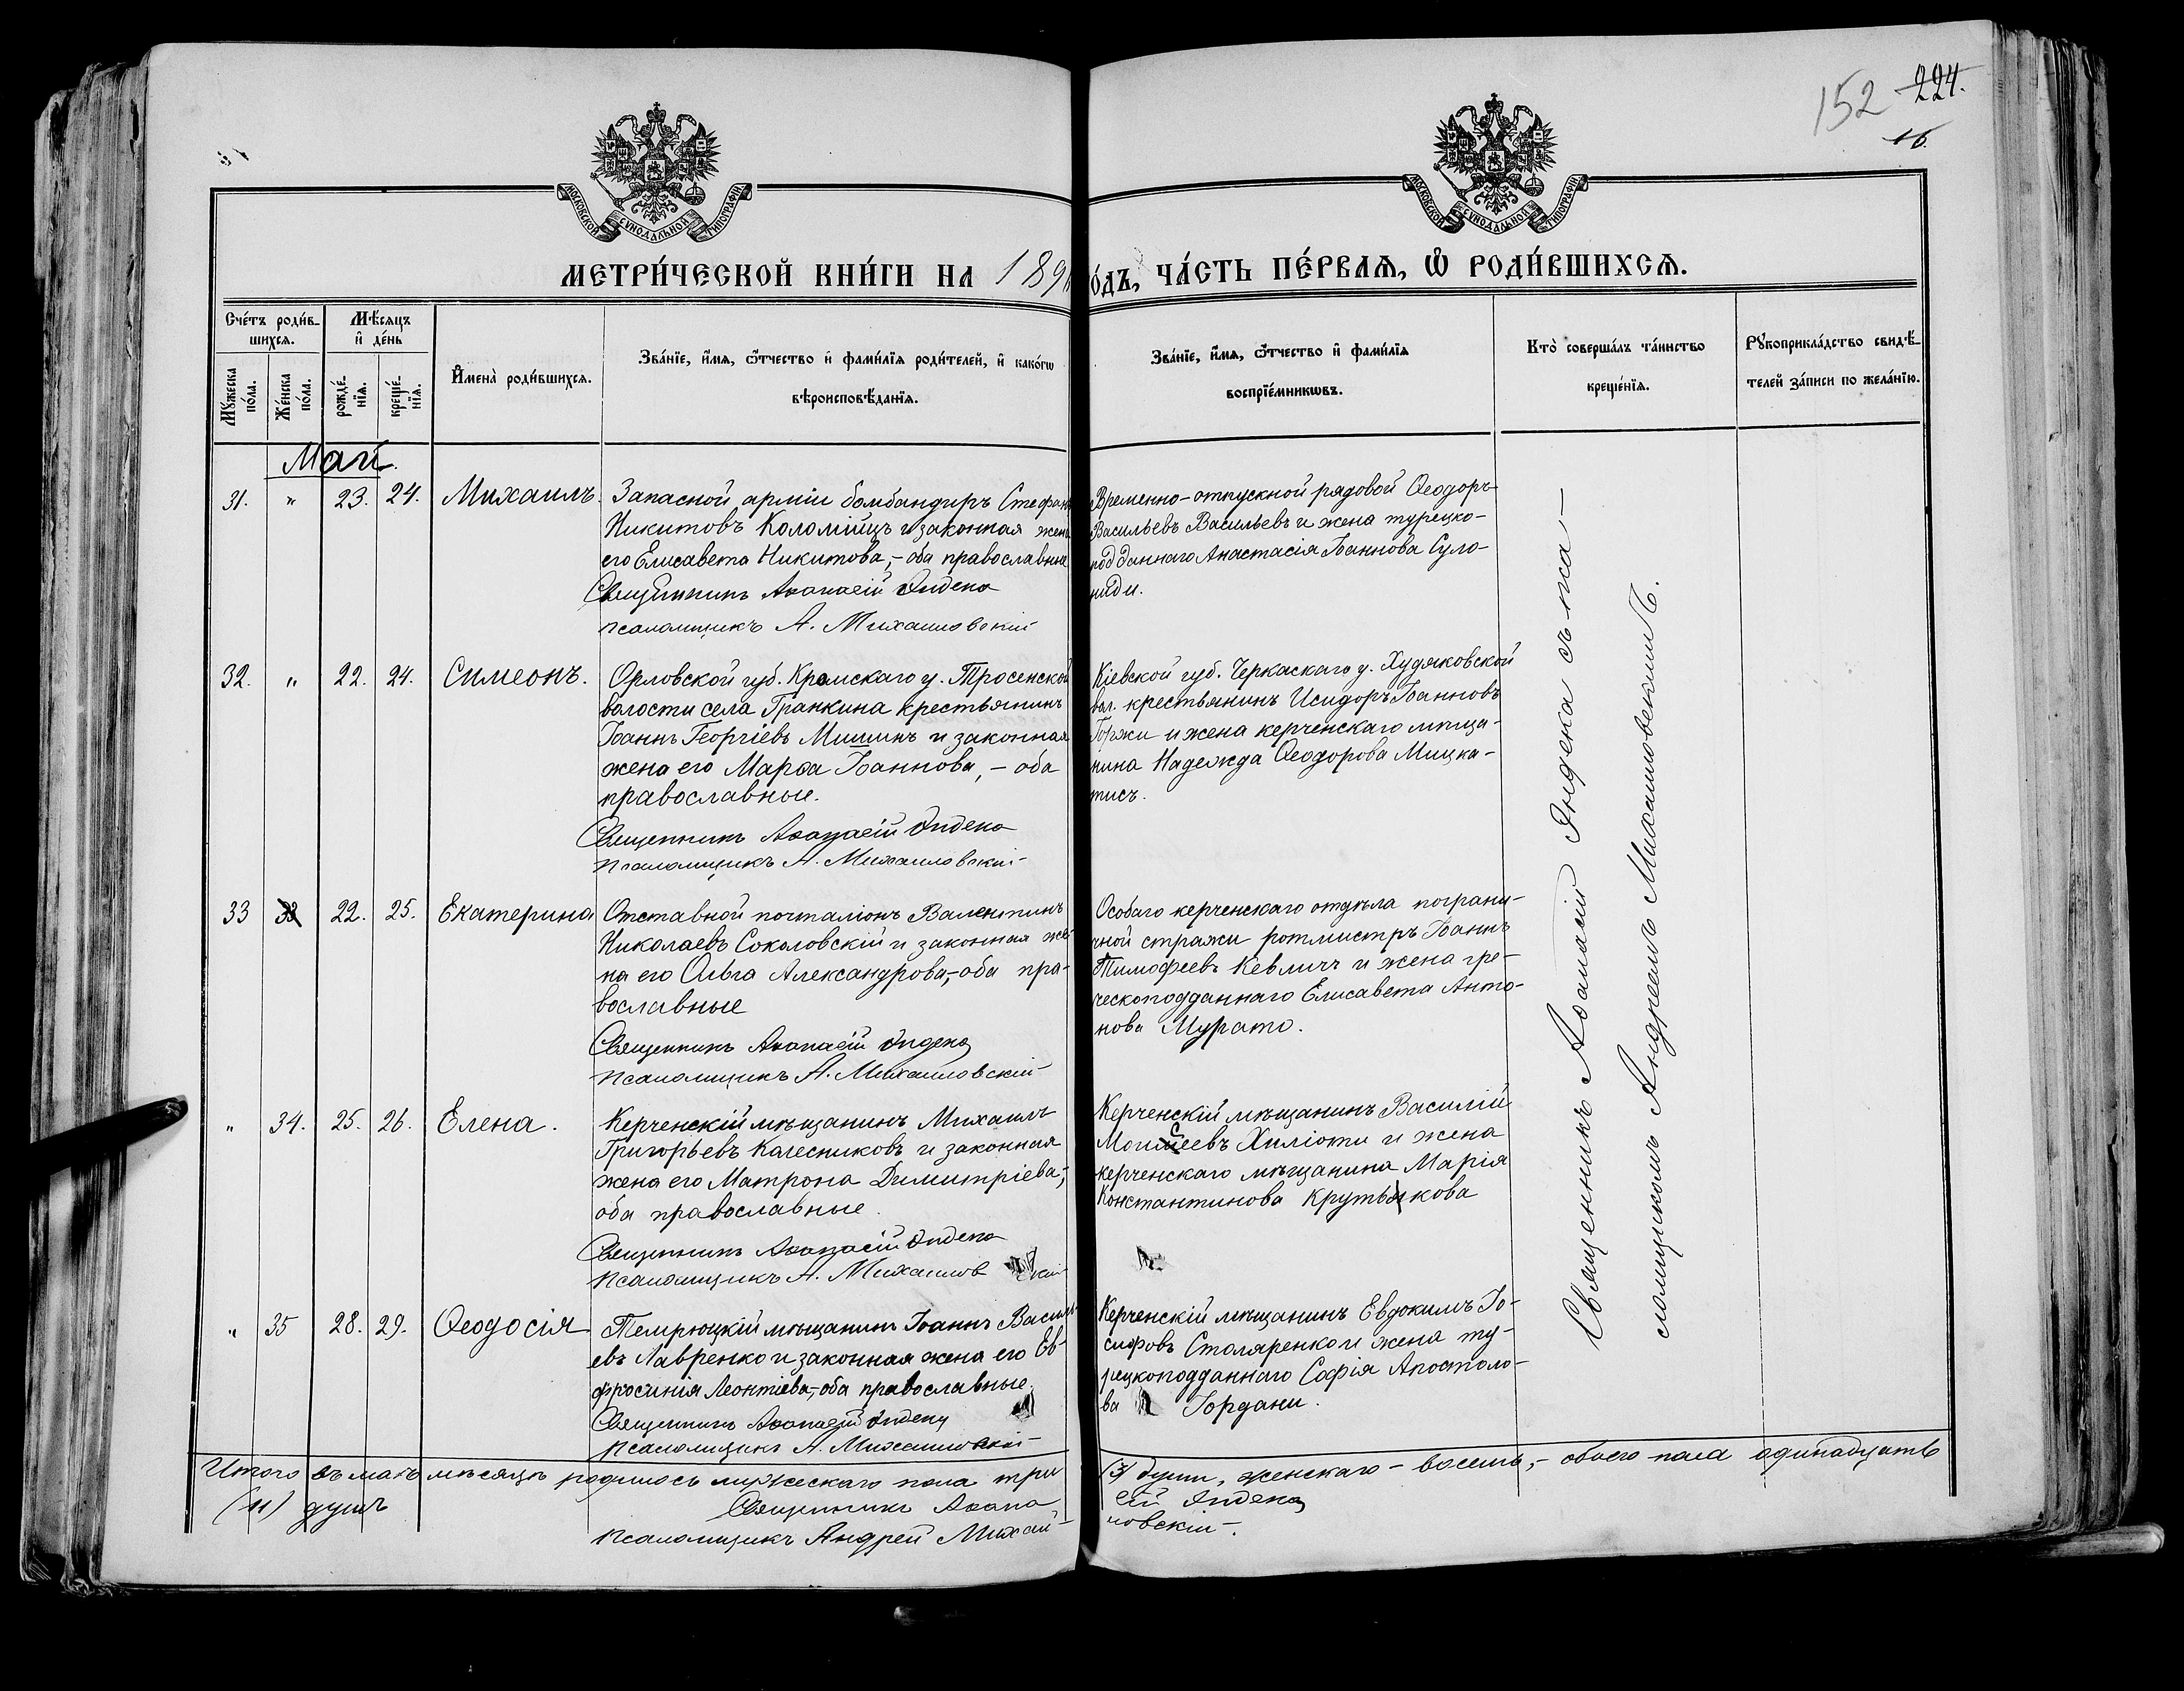 152 224.
16.
МОСКОВСКОЙ СУНОДАЛЬНОЙ ТИПОГРАФІИ
МОСКОВСКОЙ СУНОДАЛЬНОЙ ТИПОГРАФІИ
МЕТРИ́ЧЕСКОЙ КНИ́ГИ НА 189
о́дъ, ЧА́СТЬ ПЕ́РВАѦ, Ѡ҆ РОДИ́ВШИХСѦ.
Сче́тъ роди́в-
шихсѧ.
Мꙋ́жеска по́ла.
Же́нска по́ла.
Мѣ́сяцъ
и҆ де́нь
рожде́-
нїѧ.
креще́-
нїѧ.
И҆мена̀ роди́вшихсѧ.
Зва́нїе, и҆́мѧ, ѻ҆́тчество и҆ фами́лїѧ роди́телей, и҆ како́гѡ
вѣроисповѣ́данїѧ.
Зва́нїе, и҆́мѧ, ѻ҆́тчество и҆ фами́лїѧ
воспрїе́мникѡвъ.
Кто̀ соверша́лъ та́инство
креще́нїѧ.
Рꙋкоприкла́дство свидѣ́-
телей за́писи по жела́нїю.
Май.
31. " 23. 24. Михаилъ.
Запасной арміи бомбандиръ Стефанъ
Никитовъ Коломійцъ и законная жена
его Елисавета Никитова,- оба православные
Священникъ Аѳанасій Яндека
псаломщикъ А. Михаиловскій
Временно-отпускной рядовой Ѳеодоръ
Васильевъ Васильевъ и жена турецко-
подданнаго Анастасія Іоаннова Суло-
ниди.
32. " 22. 24. Симеонъ.
Орловской губ. Кромскаго у. Тросенской
волости села Гранкина крестьянинъ
Іоаннъ Георгіевъ Мишинъ и законная
жена его Марѳа Іоаннова,- оба
православные.
Священникъ Аѳанасій Яндека
псаломщикъ А. Михаиловскій
Кіевской губ. Черкаскаго у. Худяковской
вол. крестьянинъ Исидоръ Іоанновъ
Горжи и жена керченскаго мѣща-
нина Надежда Ѳеодорова Мицка-
тисъ.
33 33 22. 25. Екатерина
Отставной почталіонъ Валентинъ
Николаевъ Соколовскій и законная же-
на его Ольга Александрова,-оба пра-
вославные
Священникъ Аѳанасій Яндека
псаломщикъ А. Михаиловскій
Особаго керченскаго отдѣла пограни-
чной стражи ротмистръ Іоаннъ
Тимофеевъ Кевличъ и жена гре-
ческоподданнаго Елисавета Анто-
нова Мурато.
" 34. 25. 26. Елена.
Керченскій мѣщанинъ Михаилъ
Григорьевъ Колесниковъ и законная
жена его Матрона Димитріева,-
оба православные.
Священникъ Аѳанасій Яндека
псаломщикъ А. Михаиловскій
Керченскій мѣщанинъ Василій
Моисеевъ Хиліоти и жена
керченскаго мѣщанина Марія
Константинова Крутьякова
" 35 28. 29. Ѳеодосія
Темрюцкій мѣщанинъ Іоаннъ Василь-
евъ Лавренко и законная жена его Ев-
фросинія Леонтіева,-оба православные.
Священникъ Аѳанасій Яндека
псаломщикъ А. Михаиловскій
Керченскій мѣщанинъ Евдокимъ Іо-
сифовъ Столяренко и жена ту-
рецкоподданнаго Софія Апостоло-
ва Іордани.
Священникъ Аѳанасій Яндека съ пса-
ломщикомъ Андреемъ Михаиловскимъ.
Итого въ маѣ мѣсяцѣ родилось мужескаго пола три
(3) души, женскаго - восемь,- обоего пола одинадцать
(11) душъ
Священникъ Аѳана
сій Яндека
псаломщикъ Андрей Михаи-
ловскій.